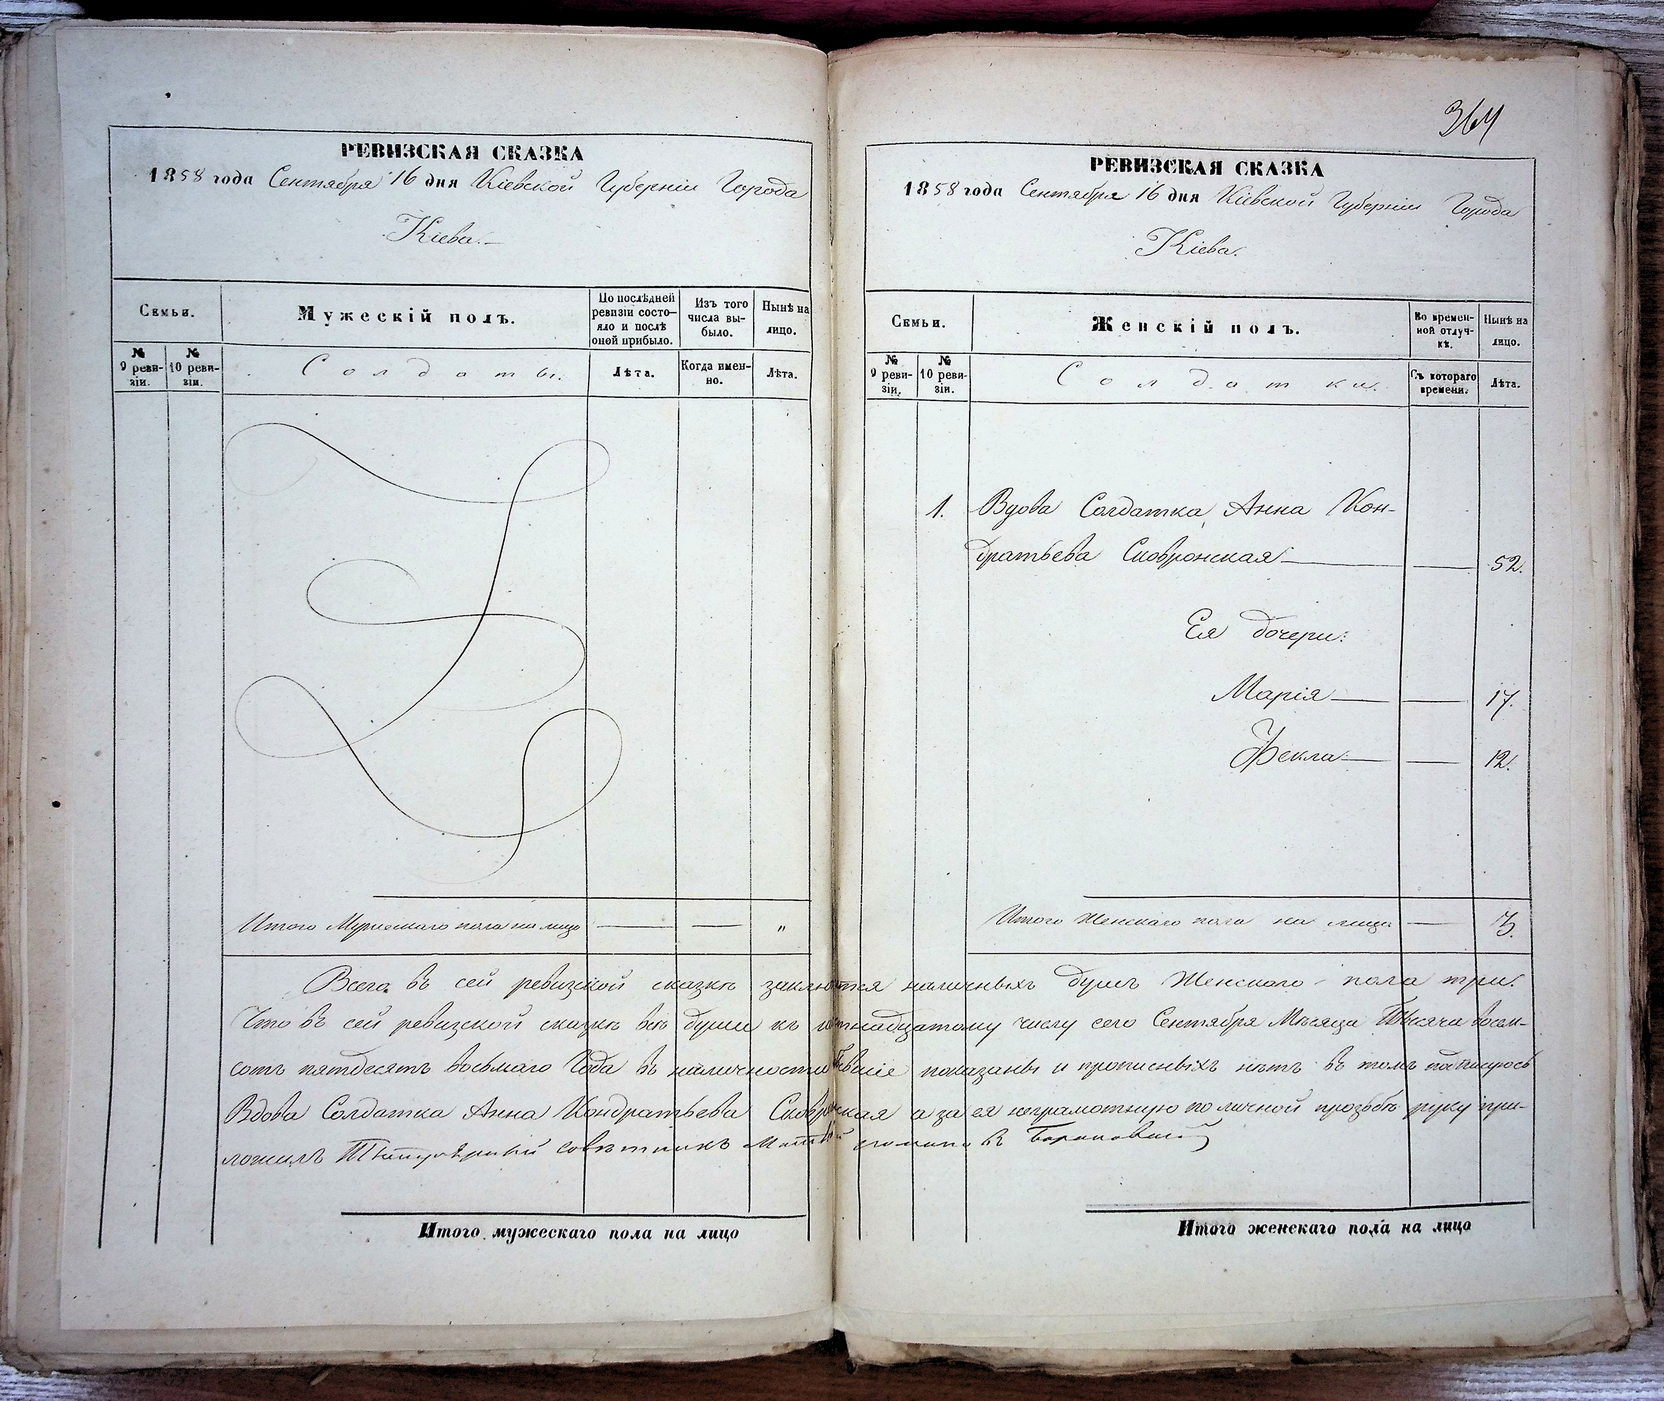 364
РЕВИЗСКАЯ СКАЗКА
1858 года Сентября 16 дня Кіевской Губерніи Города
Кіева.
Семьи.
№ 9 ревизіи.
№ 10 ревизіи.
Мужескій полъ.
Солдаты.
По послѣдней
ревизіи состо-
яло и послѣ
оной прибыло.
Лѣта.
Изъ того
числа вы-
было.
Когда имен-
но.
Нынѣ на
лицо.
Лѣта.
Итого Мужескаго пола на лицо — — "
РЕВИЗСКАЯ СКАЗКА
1858 года Сентября 16 дня Кіевской Губерніи Города
Кіева.
Семьи.
№ 9 ревизіи.
№ 10 ревизіи.
Женскій полъ.
Солдатки.
Во времен-
ной отлуч-
кѣ.
Съ котораго
времени.
Нынѣ на
лицо.
Лѣта.
1. Вдова Солдатка Анна Кон-
дратьева Сковронская — — 52.
Ея дочери:
Марія — — 17.
Фекла — — 12.
Итого Женскаго пола на лицо — 3.
Всего въ сей ревизской сказкѣ заключается наличныхъ душъ Женскаго пола три.
Что въ сей ревизской сказкѣ всѣ души къ шестнадцатому числу сего Сентября Мѣсяца Тысяча восем-
сотъ пятдесятъ восьмаго Года въ наличности бывшіе показаны и прописныхъ нѣтъ въ томъ подписуюсь
Вдова Солдатка Анна Кондратьева Сковронская а за ея неграмотную по личной прозьбѣ руку при-
ложилъ Титулярный совѣтникъ
Итого мужескаго пола на лицо
Итого женскаго пола на лицо